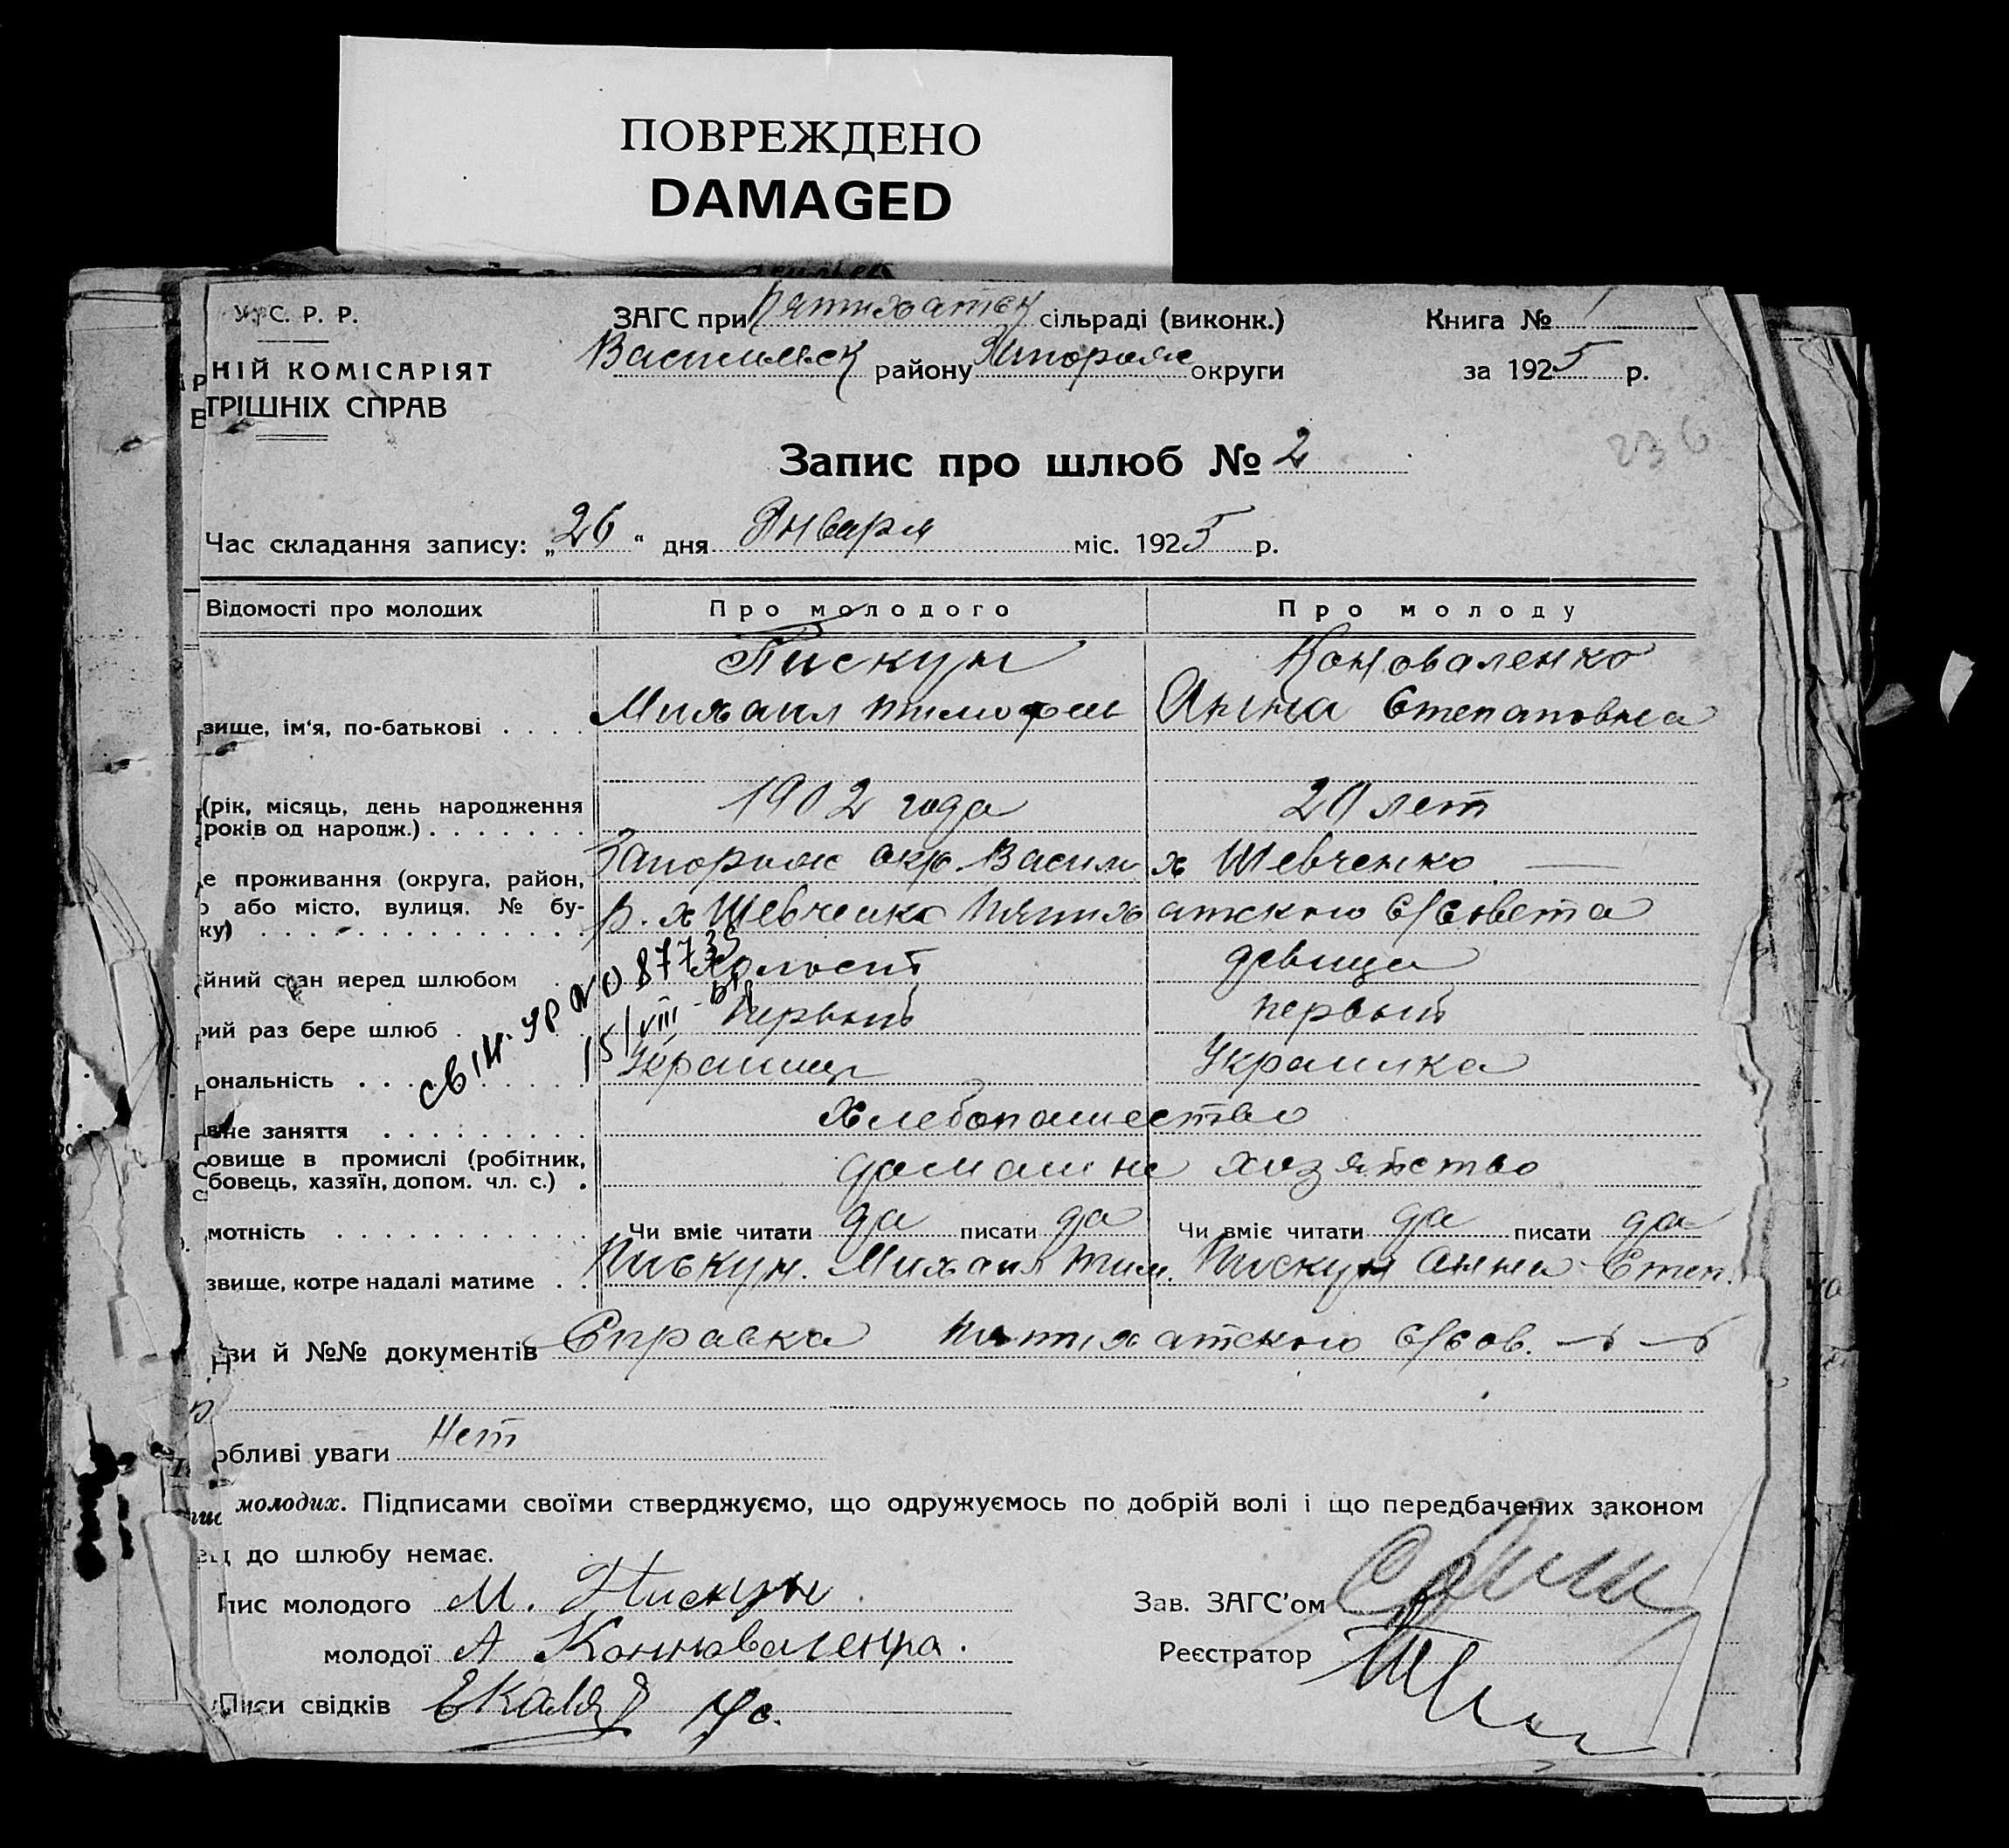 ПОВРЕЖДЕНО
DAMAGED
У. С. Р. Р.
ЗАГС при Пятихатск сільраді (виконк.)
Книга № 1
НІЙ КОМІСАРІЯТ
ТРІШНІХ СПРАВ
Васильевск району Запорож округи
за 1925 р.
236
Запис про шлюб № 2
Час складання запису: „26“ дня Января міс. 1925 р.
Відомості про молодих
Про молодого
Про молоду
Пискун
Коноваленко
звище, ім'я, по-батькові . . . .
Михаил Тимофеев
Анна Степановна
(рік, місяць, день народження
років од народж.) . . . . . . .
1902 года
20 лет
е проживання (округа, район,
о або місто, вулиця, № бу-
ку) . . . . . . . . . . . . .
Запорож окр Васил
х Шевченко —
р. х Шевченко Пятихатского с/совета
йний стан перед шлюбом . .
холост
девица
рий раз бере шлюб . . . .
первый
первый
свід. УР № 087735
15/VIII-
ональність . . . . . . . . . .
Украинец
Украинка
вне заняття . . . . . . . . .
Хлебопашество
овище в промислі (робітник,
бовець, хазяїн, допом. чл. с.) .
домашне хозяйство
мотність . . . . . . . . . . .
Чи вміє читати да писати да
Чи вміє читати да писати да
звище, котре надалі матиме . .
Пискун. Михаил Тим.
Пискун Анна Степ.
зви й №№ документів Справка Пятихатского с/сов.
обливі уваги Нет
молодих. Підписами своїми стверджуємо, що одружуємось по добрій волі і що передбачених законом
ец до шлюбу немає.
пис молодого М. Пискун
Зав. ЗАГС'ом
молодої А Конноваленка.
Реєстратор
Писи свідків